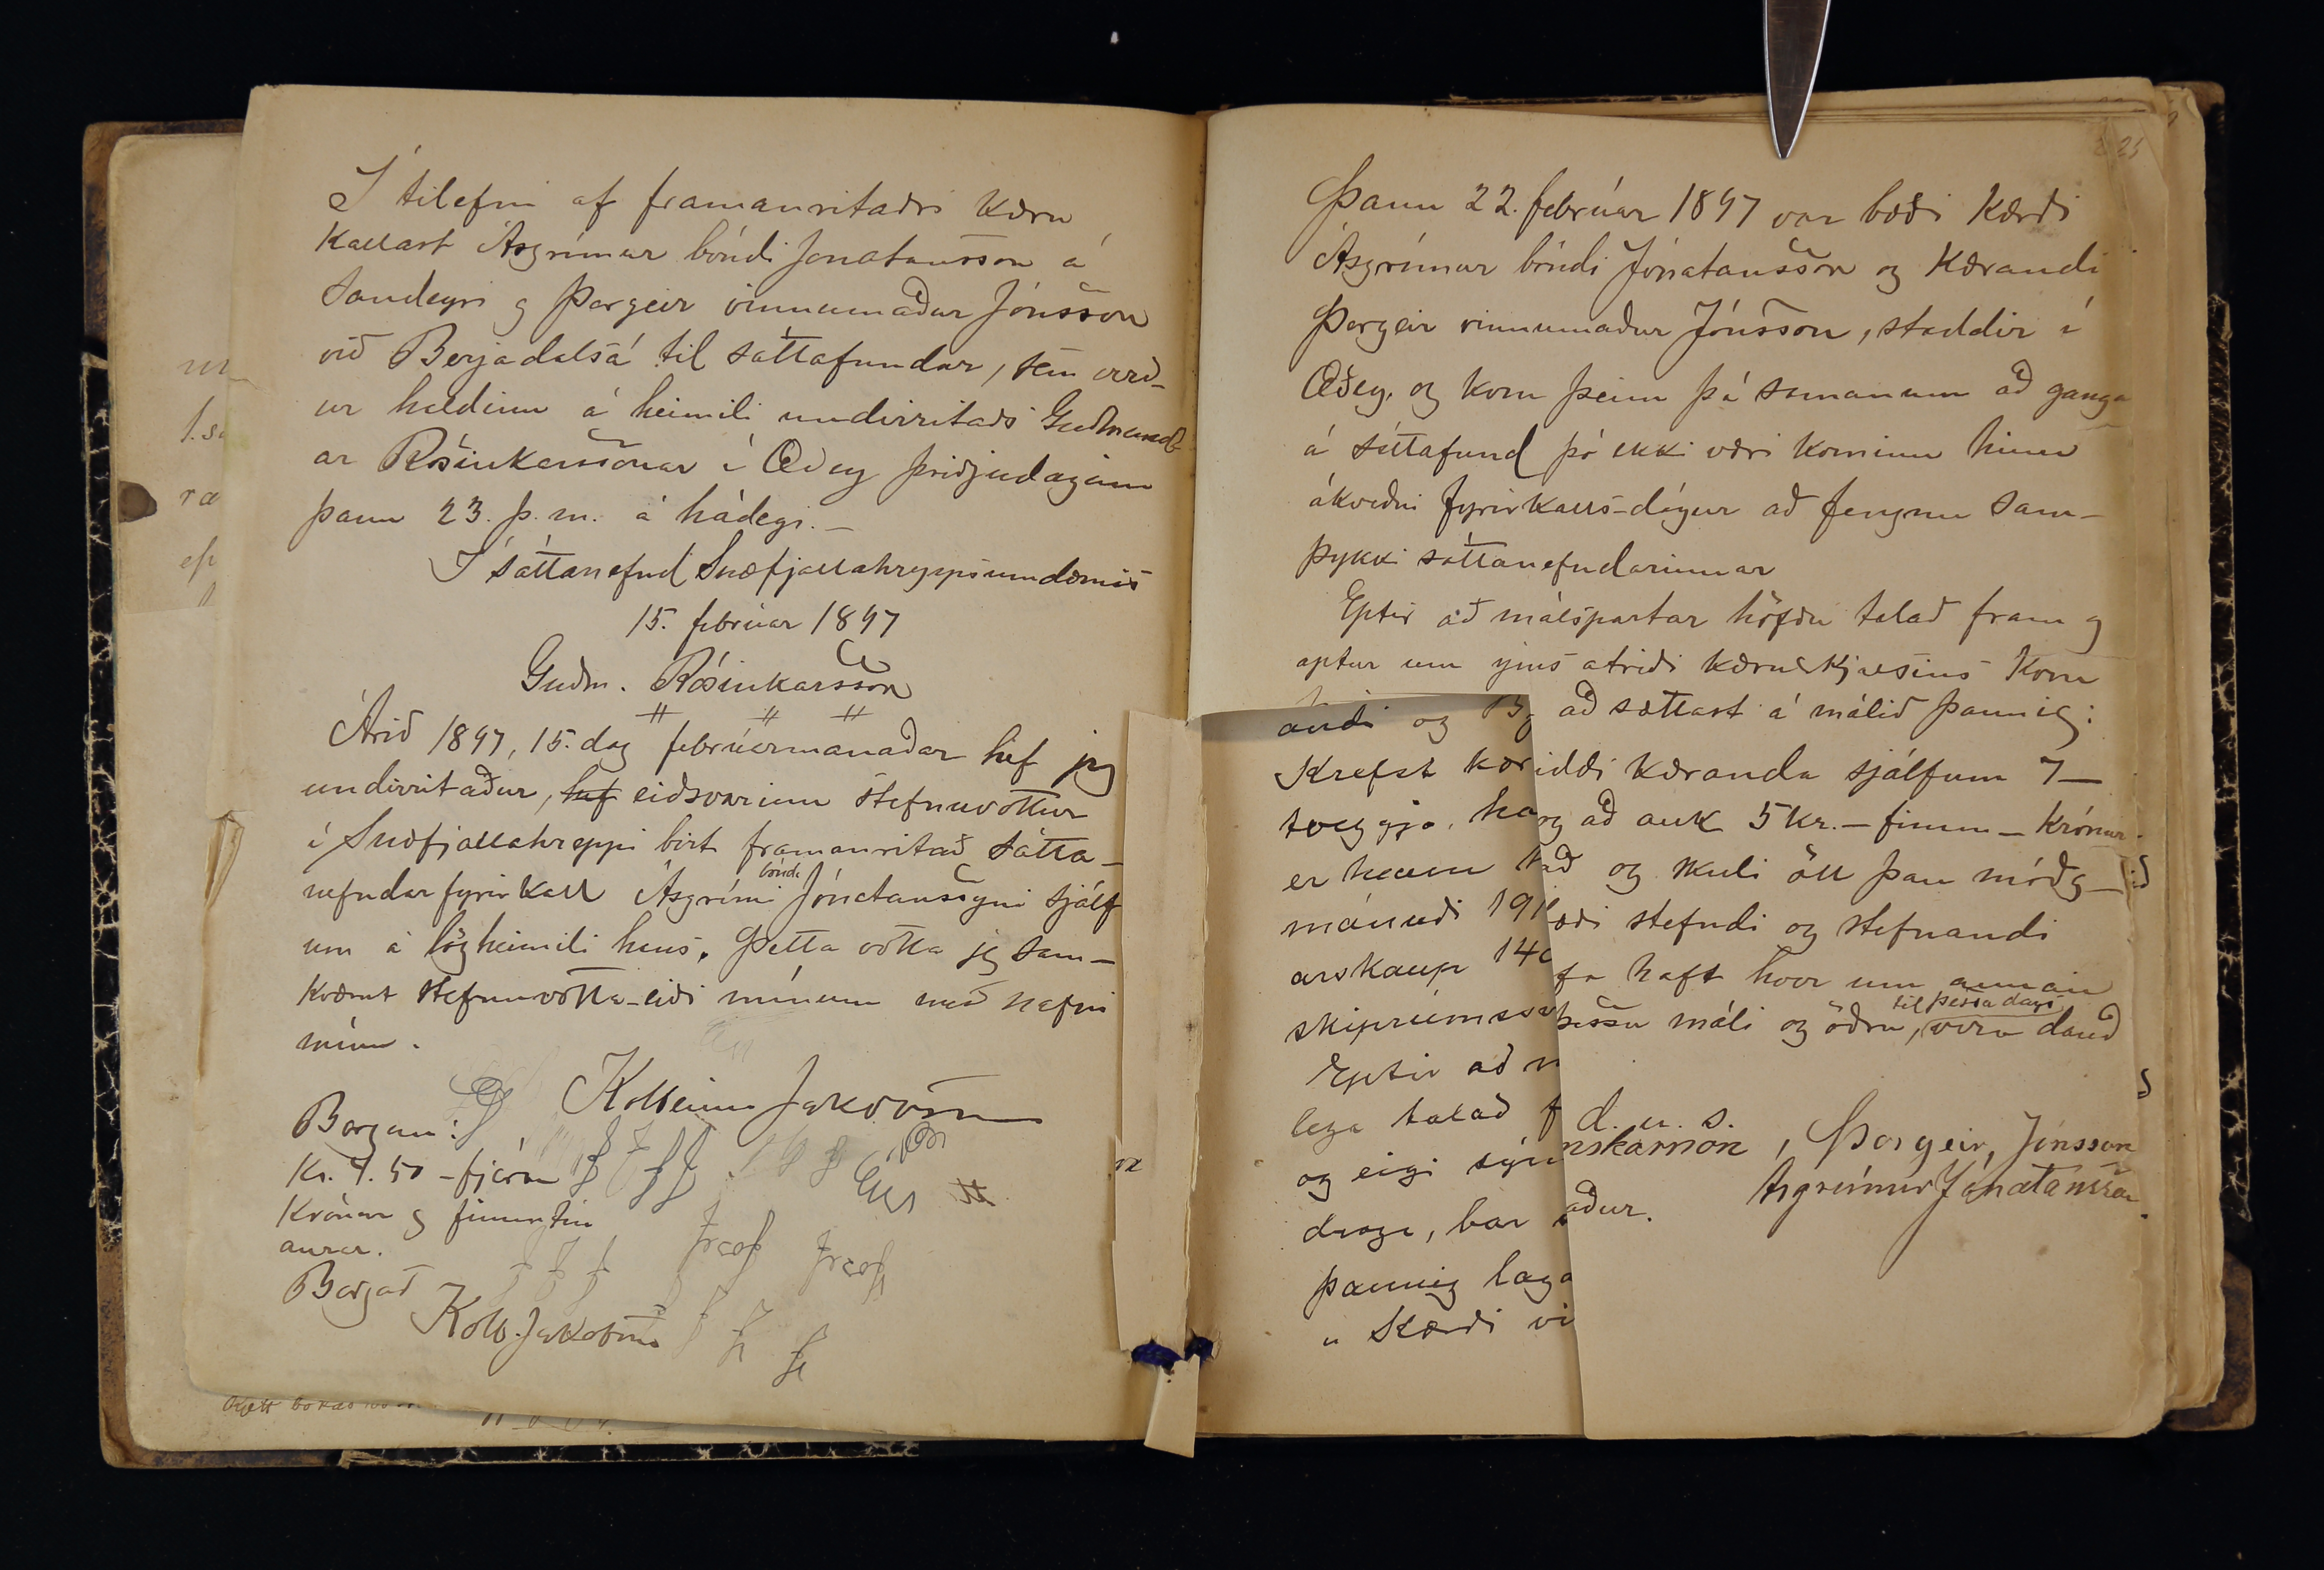 Í tilefni af framanritaðri kæru
kallast Ásgrímur bóndi Jónatansson á
Sandeyri og Þorgeir vinnumaður Jónsson
við Berjadalsá til sáttafundar, sem verð-
ur haldinn á heimili undirritaðs Guðmund-
ar Rósinkarssonar í Æðey þriðjudaginn
þann 23. þ.m. á hádegi. –
Í sáttanefnd Snæfjallahreppsumdæmis
15. febrúar 1897
Guðm. Rósinkarsson
Árið 1897, 15. dag febrúarmánaðar hef jeg
undirritaður, hef eiðsvarinn stefnuvottur
í Snæfjallahreppi birt framanritað sátta-
nefndar fyrirkall Ásgrími bónda Jónatanssyni sjálf
um á lögheimili hans. Þetta votta jeg sam-
kvæmt stefnuvotta-eiði mínum með nafni
mínu.
Kolbeinn Jakobsson
Borgun:
Kr. 4.50 – fjórar
Krónur og fimmtíu
aurar.
Borgað
Kolb. Jakobsson
25
Þann 22. febrúar 1897 var bæði kærði
Ásgrímur bóndi Jónatansson og kærandi
Þorgeir vinnumaður Jónsson, staddir í
Æðey, og kom þeim þá saman um að ganga
á sáttafund þó ekki væri kominn hinn
ákveðni fyrirkalls-dagur að fengnu sam-
þykki sáttanefndarinnar
Eptir að málspartar höfðu talað fram og
aptur um ýms atriði kæruskjalsins kom
að sættast á málið þannig:
iddi kæranda sjálfum 7 –
og að auk 5 kr. – fimm – krónur.
að og skuli öll þau móðg-
æði stefndi og stefnandi
fa haft hvor um annan
þessu máli og öðru, til þessa dags vera dauð
d. u. s.
nskarsson , Þorgeir, Jónsson
Ásgrímur Jónatansson.
aður.
andi og B
Krefst kær
tveggja, ha
er hann
mánuði 191
arskaup 140
skiprúmss
Eptir að
lega talað f
og eigi sýn
draga, bar
þannig laga
" Kærði vi